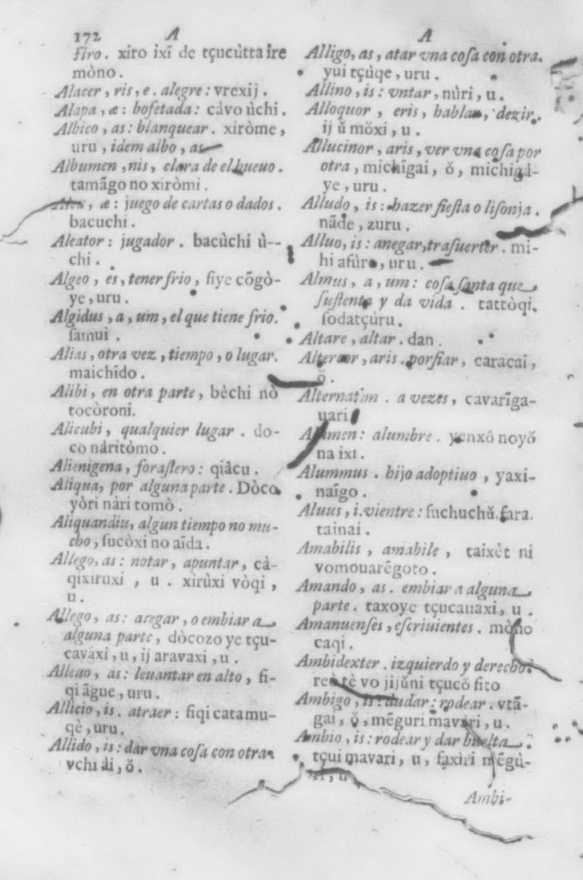 172 A A
ſiro. xiro ixĩ de tçucùtta ire
mòno.
Alacer, ris, e. alegre: vrexij.
Alapa, æ: bofetada: càvo ùchi.
Albico, as: blanquear. xiròme,
uru, idem albo, as
Albumen, nis, clara de el hueuo.
tamãgo no xiròmi.
æ: juego de cartas o dados.
bacuchi.
Aleator: jugador. bacùchi ù-
chi.
Algeo, es, tener frio, ſiye cõgò-
ye, uru.
Algidus, a, um, el que tiene frio.
ſamui.
Alias, otra vez, tiempo, o lugar.
maichĩdo.
Alibi, en otra parte, bèchi nò
tocòroni.
Alicubi, qualquier lugar. do-
co nàritòmo.
Alienigena, foraſtero: qiàcu.
Aliqua, por alguna parte. Dòco
yòri nàri tomò.
Aliquandiu, algun tiempo no mu-
cho, ſucòxi no aĩda.
Allego, as: notar, apuntar, cà-
qixiruxi, u. xirùxi vòqi,
u.
Allego, as: acegar, o embiar a
alguna parte, dòcozo ye tçu-
cavàxi, u, ij aravaxi, u.
Alleuo, as: leuantar en alto, ſi-
qi ãgue, uru.
Allicio, is. atraer: ſiqi catamu-
qè, uru.
Allido, is: dar vna coſa con otra
vchi ài, ŏ.
Alligo, as, atar vna coſa con otra.
yui tçùqe, uru.
Allino, is: vntar, nùri, u.
Alloquor, eris, hablar, dezir.
ij ŭ mŏxi, u.
Allucinor, aris, ver vna coſa por
otra, michĩgai, ŏ, michigà-
ye, uru.
Alludo, is: hazer fieſta o liſonja.
nãde, zuru.
Alluo, is: anegar, traſuerter. mi-
hi afùre, uru.
Almus, a, um: coſa ſanta que
ſuſtenta y da vida. tattòqi.
ſodatçùru.
Altare, altar. dan.
Altercor, aris. porfiar, caracai,
ŏ.
Alternatim. a vezes, cavarĩga-
uari
Alumen: alumbre. yenxô noyŏ
na ixi.
Alummus. hijo adoptiuo, yaxi-
naĩgo.
Aluus, i. vientre: fuchuchŭ. ſara
tainai.
Amabilis, amabile, taixèt ni
vomouarẽgoto.
Amando, as. embiar a alguna
parte. taxoye tçucauaxi, u.
Amanuenſes, eſcriuientes. mòno
caqi.
Ambidexter. izquierdo y derecho
tè vo jijŭni tçucŏ ſito
Ambigo, is: dudar: rodear. vtã-
gai, ŏ, mẽguri mavari, u.
Ambio, is: rodear y dar buelta.
tçui mavari, u, faxiri mẽgù-
ri, u.
Ambi-